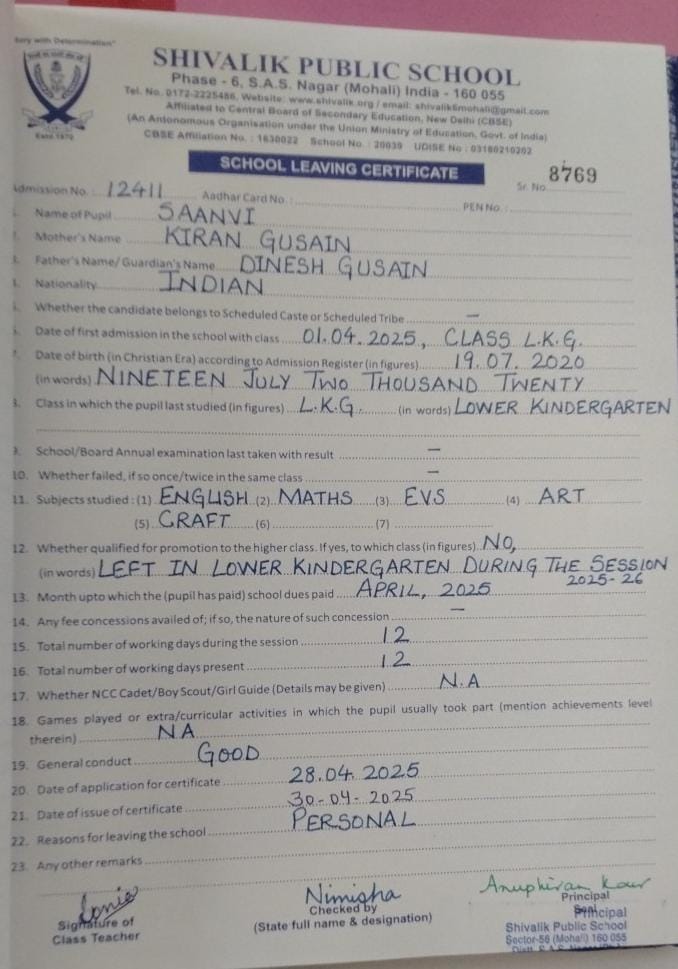 tory with Determination"
SHIVALIK PUBLIC SCHOOL
Phase - 6, S.A.S. Nagar (Mohali) India - 160 055
Tel. No. 0172-2225486, Website: www.shivalik.org / email: shivalik6mohali@gmail.com
Affiliated to Central Board of Secondary Education, New Delhi (CBSE)
(An Antonomous Organisation under the Union Ministry of Education, Govt. of India)
Estd. 1970
CBSE Affiliation No. : 1630022 School No. : 20039 UDISE No : 03180210202
SCHOOL LEAVING CERTIFICATE
Sr. No. 8769
Admission No. : 12411 Aadhar Card No. : PEN No. :
Name of Pupil SAANVI
Mother's Name KIRAN GUSAIN
Father's Name/ Guardian's Name DINESH GUSAIN
Nationality INDIAN
Whether the candidate belongs to Scheduled Caste or Scheduled Tribe —
Date of first admission in the school with class 01.04.2025, CLASS L.K.G.
Date of birth (in Christian Era) according to Admission Register (in figures) 19.07.2020
(in words) NINETEEN JULY TWO THOUSAND TWENTY
8. Class in which the pupil last studied (in figures) L.K.G. (in words) LOWER KINDERGARTEN
9. School/Board Annual examination last taken with result —
10. Whether failed, if so once/twice in the same class —
11. Subjects studied : (1) ENGLISH (2) MATHS (3) EVS (4) ART
(5) CRAFT (6) (7)
12. Whether qualified for promotion to the higher class. If yes, to which class (in figures) NO,
(in words) LEFT IN LOWER KINDERGARTEN DURING THE SESSION
2025-26
13. Month upto which the (pupil has paid) school dues paid APRIL, 2025
14. Any fee concessions availed of; if so, the nature of such concession —
15. Total number of working days during the session 12
16. Total number of working days present 12
17. Whether NCC Cadet/Boy Scout/Girl Guide (Details may be given) N.A
18. Games played or extra/curricular activities in which the pupil usually took part (mention achievements level
therein) NA
19. General conduct GOOD
20. Date of application for certificate 28.04.2025
21. Date of issue of certificate 30-04-2025
22. Reasons for leaving the school PERSONAL
23. Any other remarks
Signature of
Class Teacher
Nimisha
Checked by
(State full name & designation)
Anuphiran Kaur
Principal
Seal
Principal
Shivalik Public School
Sector-56 (Mohali) 160 055